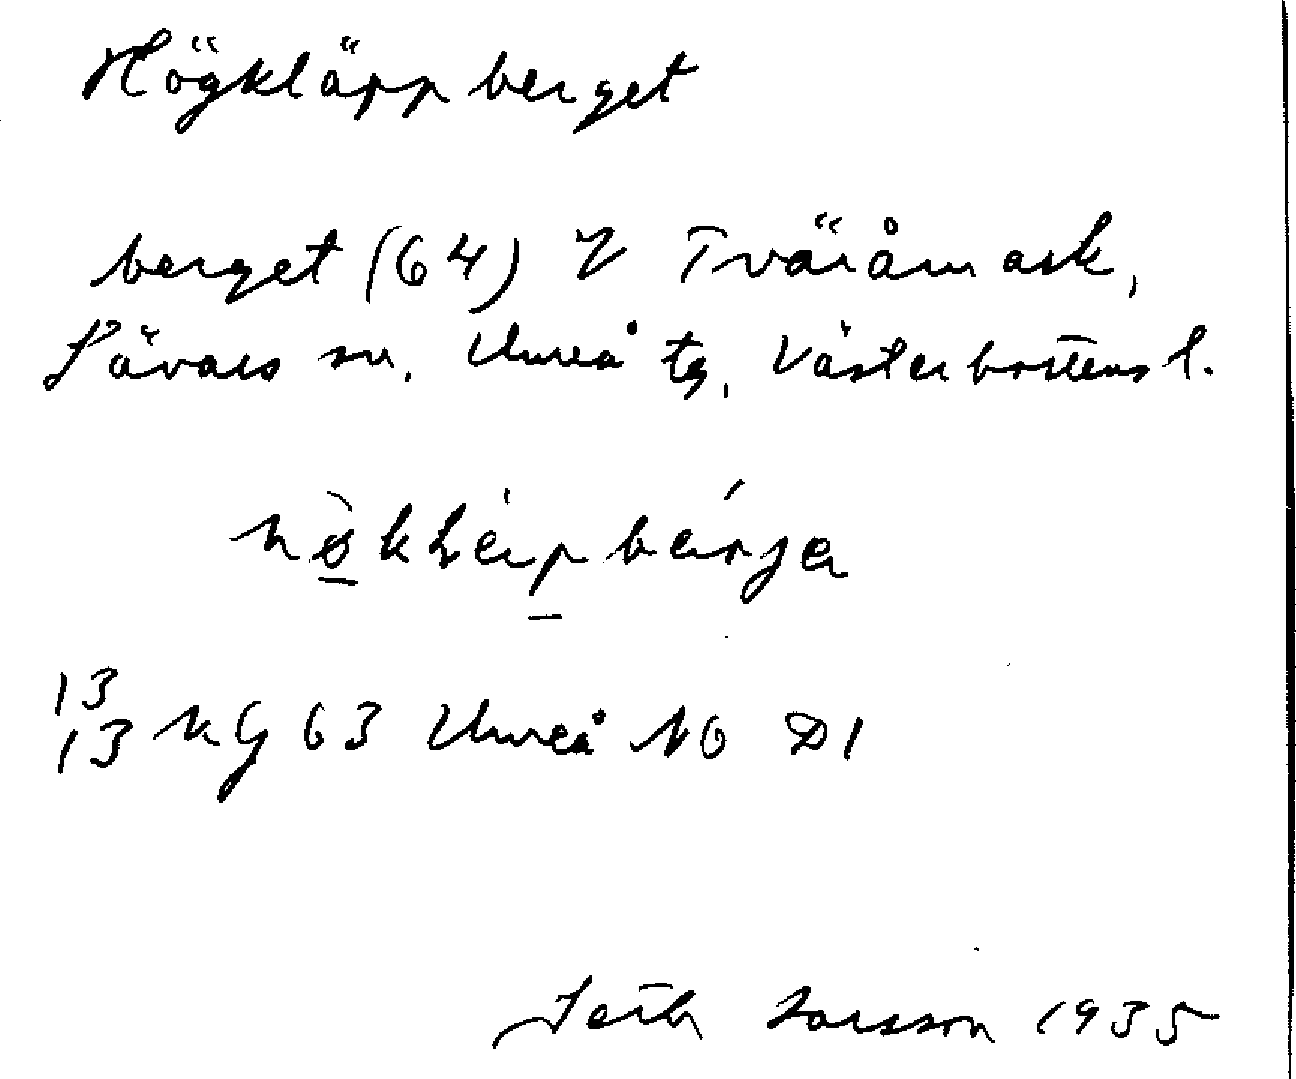 Högkläppberget
berget (64) V Tväråmark,
Sävars sn, Umeå tg, Västerbottens l.
13
13 KG 63 Umeå NO D1
Seth Larsson 1935